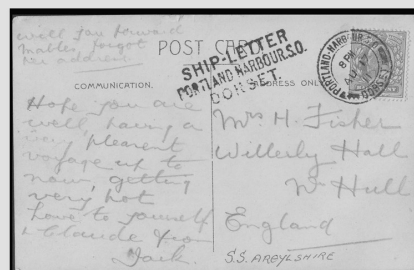 will you forward
Mables, forgot
her address
POST CARD
SHIP-LETTER
PORTLAND HARBOUR.S.O.
DORSET.
COMMUNICATION.
ADDRESS ONLY
PORTLAND-HARBOUR.S.O
8 PM
Hope you are
well, having a
very pleasent
voyage up to
now, getting
very hot
love to yourself
& Claude from
Jack.
Mrs H. Fisher
Willerly Hall
Nr Hull
England
S.S. ARBYLSHIRE